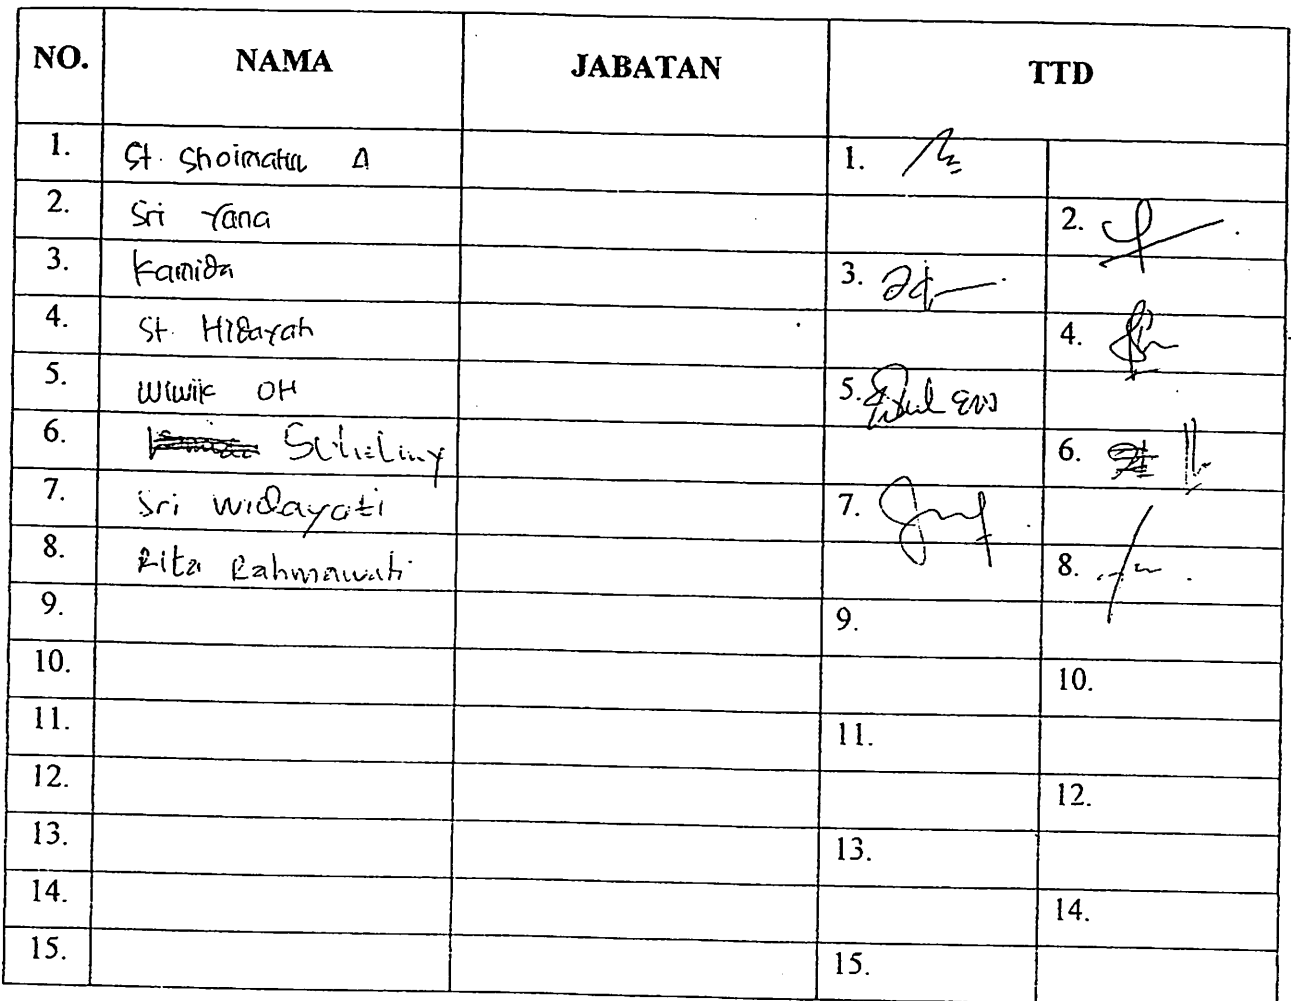 NO. NAMA JABATAN TTD
1. St. Shoimatu A 1.
2. Sri Yana 2.
3. Kamida 3.
4. St. Hidayah 4.
5. Wiwik OH 5.
6. 6.
7. Sri Widayati 7.
8. Rita Rahmawati 8.
9. 9.
10. 10.
11. 11.
12. 12.
13. 13.
14. 14.
15. 15.